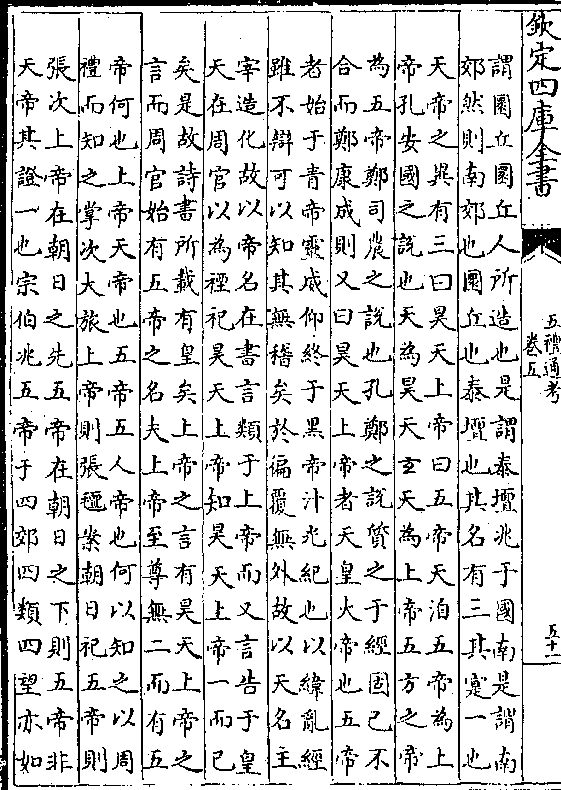 欽定四庫全書
五禮通考
卷五
五十一
謂圜丘圜丘人所造也是謂泰壇兆于國南是謂南
郊然則南郊也圜丘也泰壇也其名有三其寔一也
天帝之異有三曰昊天上帝曰五帝天洎五帝為上
帝孔安國之說也天為昊天玄天為上帝五方之帝
為五帝鄭司農之說也孔鄭之說質之于經固已不
合而鄭康成則又曰昊天上帝者天皇大帝也五帝
者始于青帝靈威仰終于黑帝汁光紀也以緯亂經
雖不辯可以知其無稽矣於偏覆無外故以天名主
宰造化故以帝名在書言類于上帝而又言告于皇
天在周官以為禋祀昊天上帝知昊天上帝一而已
矣是故詩書所載有皇矣上帝之言有昊天上帝之
言而周官始有五帝之名夫上帝至尊無二而有五
帝何也上帝天帝也五帝五人帝也何以知之以周
禮而知之掌次大旅上帝則張氊案朝日祀五帝則
張次上帝在朝日之先五帝在朝日之下則五帝非
天帝其證一也宗伯兆五帝于四郊四類四望亦如